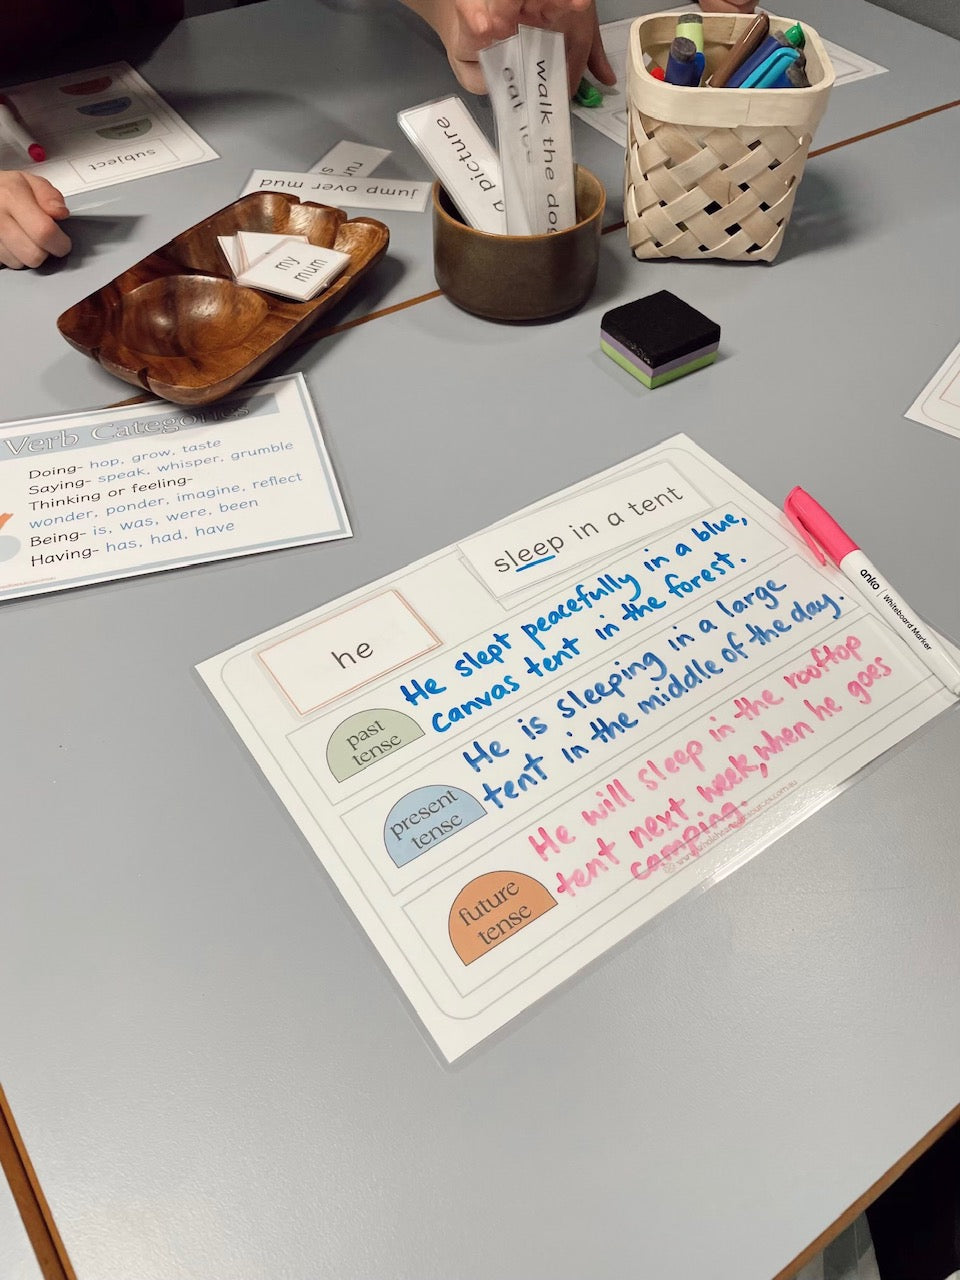 subject
jump over mud
a picture
walk the dog
my
mum
Verb Categories
Doing- hop, grow, taste
Saying- speak, whisper, grumble
Thinking or feeling-
wonder, ponder, imagine, reflect
Being- is, was, were, been
Having- has, had, have
he
sleep in a tent
past
tense
He slept peacefully in a blue,
canvas tent in the forest.
present
tense
He is sleeping in a large
tent in the middle of the day.
future
tense
He will sleep in the rooftop
tent next week, when he goes
camping.
anko Whiteboard Marker